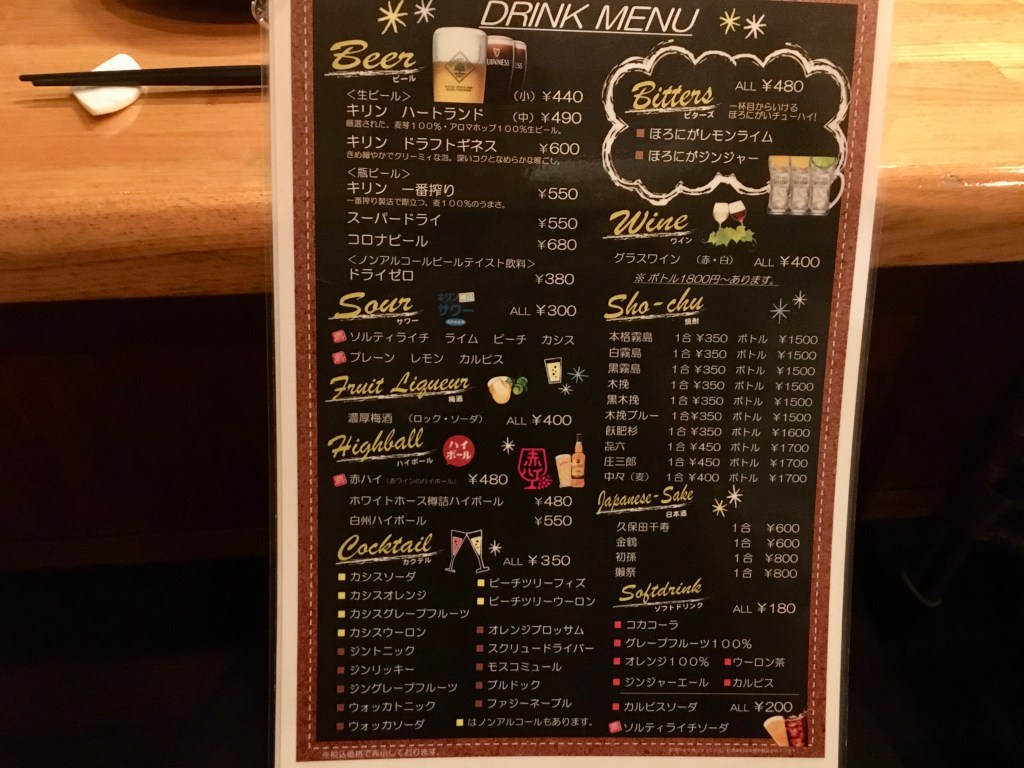 DRINK MENU
Beer
ビール
GUINNESS
<生ビール> (小) ¥440
キリン ハートランド (中) ¥490
厳選された、麦芽100%・アロマホップ100%生ビール。
キリン ドラフトギネス ¥600
きめ細やかでクリーミィな泡。深いコクとなめらかな喉ごし。
<瓶ビール>
キリン 一番搾り ¥550
一番搾り製法で際立つ、麦100%のうまさ。
スーパードライ ¥550
コロナビール ¥680
<ノンアルコールビールテイスト飲料>
ドライゼロ ¥380
Sour
サワー
キリン
サワー
ALL ¥300
ソルティライチ ライム ピーチ カシス
プレーン レモン カルピス
Fruit Liqueur
梅酒
濃厚梅酒 (ロック・ソーダ) ALL ¥400
Highball
ハイボール
ハイボール
赤ハイ (赤ワインのハイボール) ¥480
ホワイトホース樽詰ハイボール ¥480
白州ハイボール ¥550
Cocktail
カクテル
ALL ¥350
カシスソーダ
カシスオレンジ
カシスグレープフルーツ
カシスウーロン
ジントニック
ジンリッキー
ジングレープフルーツ
ウォッカトニック
ウォッカソーダ
ピーチツリーフィズ
ピーチツリーウーロン
オレンジブロッサム
スクリュードライバー
モスコミュール
ブルドック
ファジーネーブル
はノンアルコールもあります。
※税込価格で表示しております。
Bitters
ビターズ
ALL ¥480
一杯目からいける
ほろにがいチューハイ!
ほろにがレモンライム
ほろにがジンジャー
Wine
ワイン
グラスワイン (赤・白) ALL ¥400
※ ボトル1800円~あります。
Sho-chu
焼酎
本格霧島 1合 ¥350 ボトル ¥1500
白霧島 1合 ¥350 ボトル ¥1500
黒霧島 1合 ¥350 ボトル ¥1500
木挽 1合 ¥350 ボトル ¥1500
黒木挽 1合 ¥350 ボトル ¥1500
木挽ブルー 1合 ¥350 ボトル ¥1500
飫肥杉 1合 ¥350 ボトル ¥1600
㐂六 1合 ¥450 ボトル ¥1700
庄三郎 1合 ¥450 ボトル ¥1700
中々 (麦) 1合 ¥400 ボトル ¥1700
赤ハイ
Japanese-Sake
日本酒
久保田千寿 1合 ¥600
金鶴 1合 ¥600
初孫 1合 ¥800
獺祭 1合 ¥800
Softdrink
ソフトドリンク
ALL ¥180
コカコーラ
グレープフルーツ100%
オレンジ100% ウーロン茶
ジンジャーエール カルピス
カルピスソーダ ALL ¥200
ソルティライチソーダ